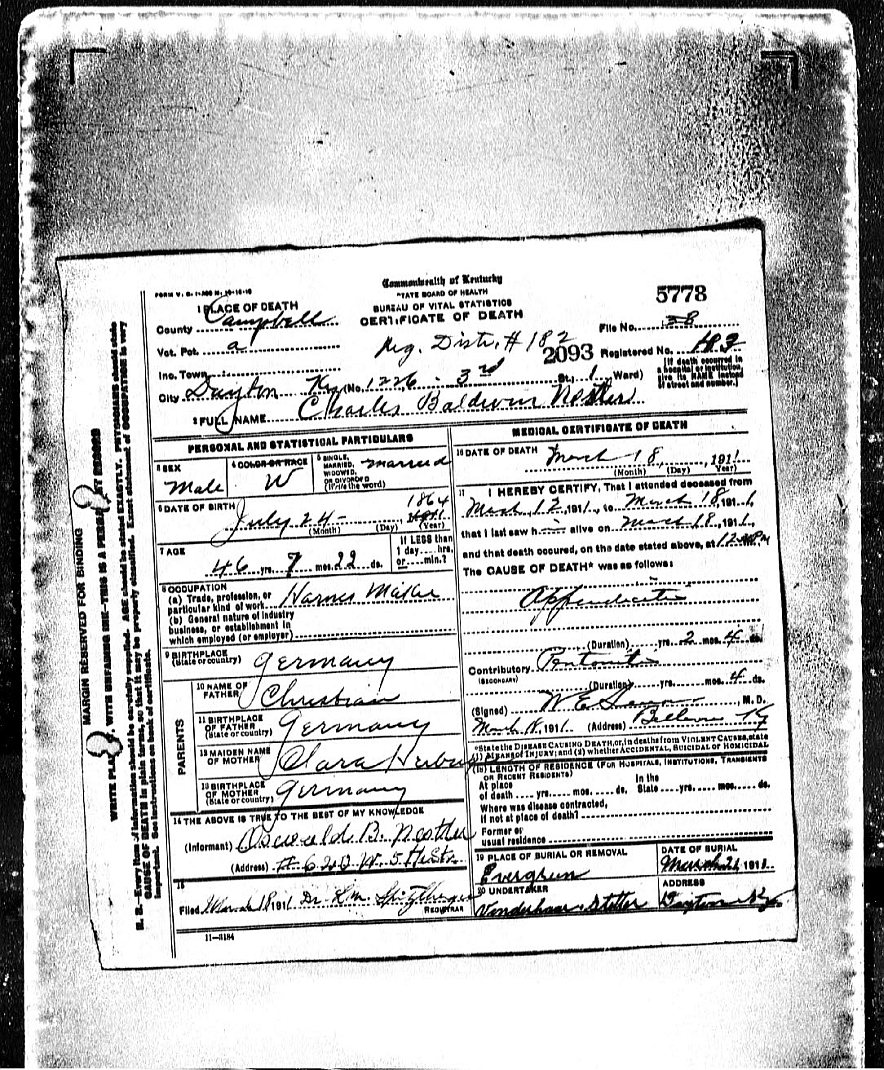 FORM V. S. 1-
Commonwealth of Kentucky
STATE BOARD OF HEALTH
BUREAU OF VITAL STATISTICS
CERTIFICATE OF DEATH
5778
File No. 38
1 PLACE OF DEATH
County Campbell
Vot. Pct. a
Reg. Distr. # 182
2093 Registered No. 183
Inc. Town
City Dayton Ky (No. 1226 - 3rd St., 1 Ward)
(If death occurred in a hospital or institution, give its NAME instead of street and number.)
2 FULL NAME Charles Baldwin
PERSONAL AND STATISTICAL PARTICULARS
3 SEX Male
4 COLOR OR RACE W
5 SINGLE, MARRIED, WIDOWED, OR DIVORCED (Write the word) married
6 DATE OF BIRTH July 24 - 1864
(Month) (Day) (Year)
7 AGE 46 yrs. 7 mos. 22 ds.
If LESS than 1 day.... hrs. or.... min.?
8 OCCUPATION
(a) Trade, profession, or particular kind of work Harnes Maker
(b) General nature of industry business, or establishment in which employed (or employer)
9 BIRTHPLACE (State or country) Germany
PARENTS
10 NAME OF FATHER Christian
11 BIRTHPLACE OF FATHER (State or country) Germany
12 MAIDEN NAME OF MOTHER Clara
13 BIRTHPLACE OF MOTHER (State or country) Germany
14 THE ABOVE IS TRUE TO THE BEST OF MY KNOWLEDGE
(Informant) Oswald B.
(Address) # 620 W. 5
15
Filed March 18 1911 Dr.
REGISTRAR
11-5184
MEDICAL CERTIFICATE OF DEATH
16 DATE OF DEATH March 18, 1911
(Month) (Day) Year)
17 I HEREBY CERTIFY, That I attended deceased from
March 12, 1911, to March 18, 1911,
that I last saw h alive on March 18, 1911,
and that death occured, on the date stated above, at 12
The CAUSE OF DEATH* was as follows:
Appendicitis
(Duration) yrs. 2 mos. 4 ds.
Contributory
(SECONDARY)
(Duration) yrs. mos. 4 ds.
(Signed) W. E. M. D.
March 18, 1911 (Address) Bellevue Ky
*State the DISEASE CAUSING DEATH, or, in deaths from VIOLENT CAUSES, state
(1) MEANS OF INJURY; and (2) whether ACCIDENTAL, SUICIDAL or HOMICIDAL
18 LENGTH OF RESIDENCE (FOR HOSPITALS, INSTITUTIONS, TRANSIENTS OR RECENT RESIDENTS)
At place of death .... yrs. .... mos. .... ds. In the State .... yrs. .... mos. .... ds.
Where was disease contracted,
if not at place of death?
Former or
usual residence
19 PLACE OF BURIAL OR REMOVAL
Evergreen
DATE OF BURIAL
March 21, 1911
20 UNDERTAKER
Vonderhaar & Stetter
ADDRESS
Dayton Ky.
MARGIN RESERVED FOR BINDING
WRITE PLAINLY, WITH UNFADING INK—THIS IS A PERMANENT RECORD
N. B.—Every item of information should be carefully supplied. AGE should be stated EXACTLY. PHYSICIANS should state
CAUSE OF DEATH in plain terms, so that it may be properly classified. Exact statement of OCCUPATION is very
important. See instructions on back of certificate.